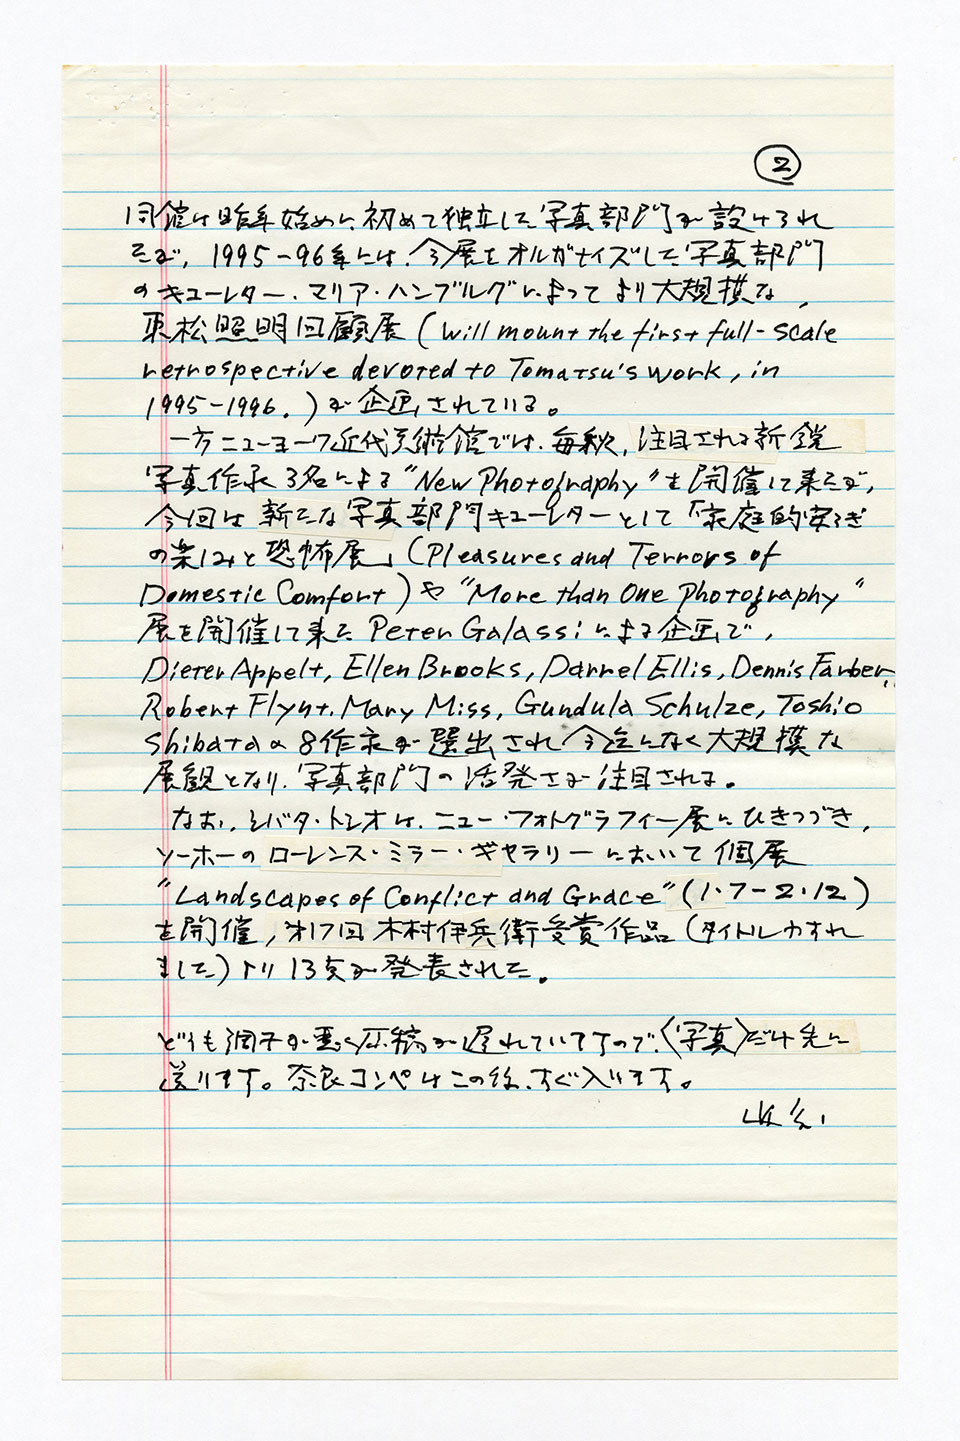 ②
同館は昨年始めに、初めて独立した写真部門が設けられ
たが、1995-96年には、今展をオルガナイズした写真部門
のキューレター・マリア・ハンブルグによってより大規模な、
東松照明回顧展 (will mount the first full-scale
retrospective devoted to Tomatsu's work, in
1995-1996.)が企画されている。
一方ニューヨーク近代美術館では、毎秋、注目される新鋭
写真作家3名による"New Photography"を開催して来たが、
今回は新たな写真部門キューレターとして「家庭的安らぎ
の楽しみと恐怖展」(Pleasures and Terrors of
Domestic Comfort)や"More than One Photography"
展を開催して来たPeter Galassiによる企画で、
Dieter Appelt, Ellen Brooks, Darrel Ellis, Dennis Farber,
Robert Flynt, Mary Miss, Gundula Schulze, Toshio
Shibataの8作家が選出され今迄になく大規模な
展観となり、写真部門の活発さが注目される。
なお、シバタ・トシオは、ニュー・フォトグラフィー展にひきつづき、
ソーホーのローレンス・ミラー・ギャラリーにおいて個展
"Landscapes of Conflict and Grace"(1・7-2・12)
を開催、第17回木村伊兵衛受賞作品(タイトルカすれ
ました)より13点が発表された。
どうも調子が悪く原稿が遅れていますので、(写真)だけ先に
送ります。奈良コンペはこの後、すぐ入ります。